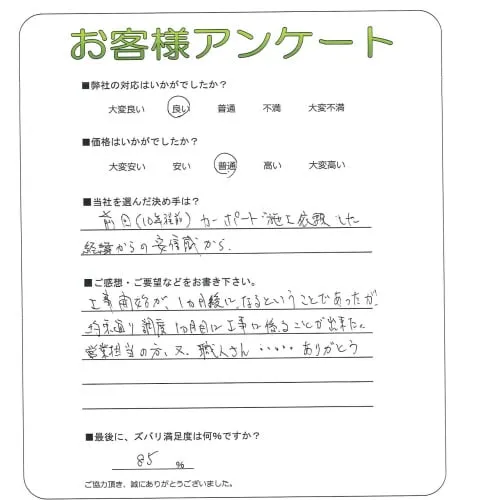 お客様アンケート
■弊社の対応はいかがでしたか?
大変良い 良い 普通 不満 大変不満
■価格はいかがでしたか?
大変安い 安い 普通 高い 大変高い
■当社を選んだ決め手は?
前回(10年程前)カーポート施工依頼した
経緯からの安信感から.
■ご感想・ご要望などをお書き下さい。
工事開始が、1ヵ月後になるということであったが
約束通り調度1ヵ月目に工事に係ることが出来た。
営業担当の方、又、職人さん・・・・ありがとう
■最後に、ズバリ満足度は何%ですか?
85 %
ご協力頂き、誠にありがとうございました。